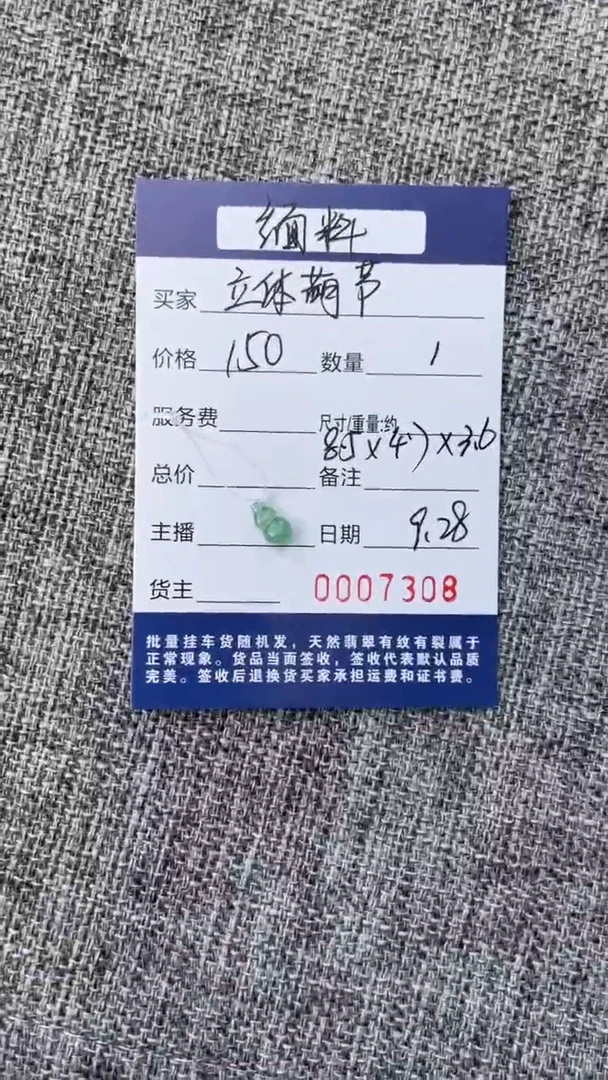 缅料
买家 立体葫芦
价格 150 数量 1
服务费 尺寸/重量:约
8.5×4.7×3.6
总价 备注
主播 日期 9.28
货主 0007308
批量挂车货随机发，天然翡翠有纹有裂属于
正常现象。货品当面签收，签收代表默认品质
完美。签收后退换货买家承担运费和证书费。